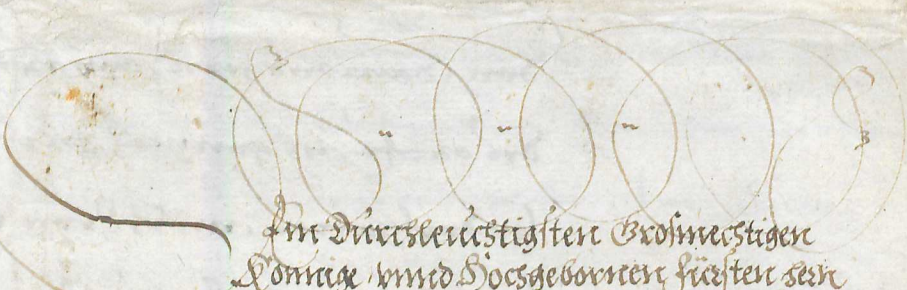 Em Durchleuchtigsten Grosmechtigen
Konnige vnnd Hochgebornen fursten hern